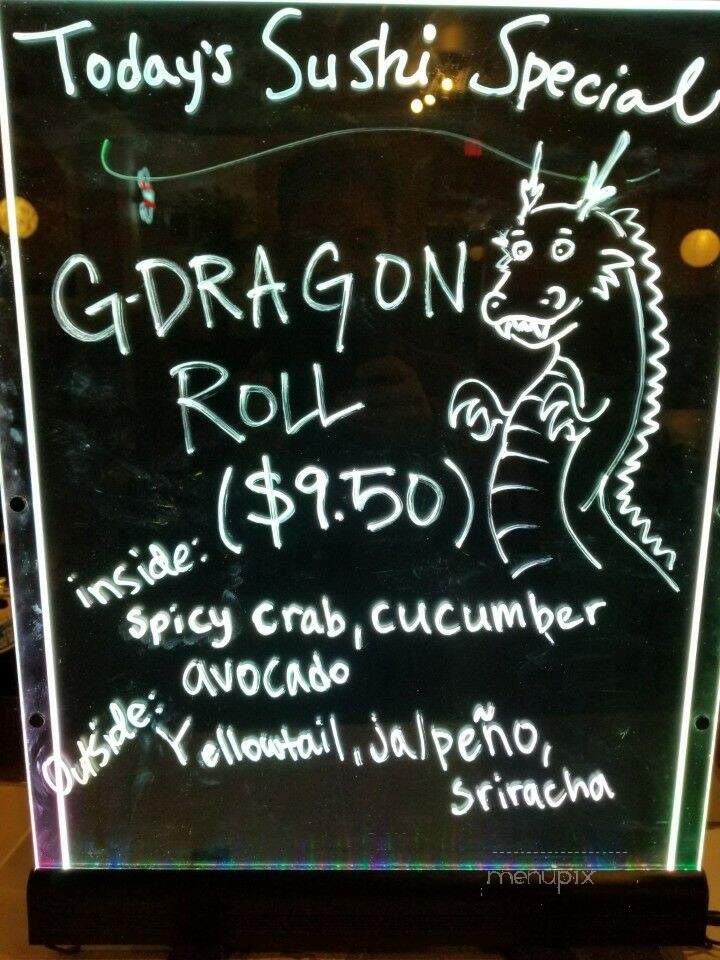 Today's Sushi Special
G-DRAGON
ROLL
($9.50)
inside:
spicy crab, cucumber
avocado
Outside:
Yellowtail, jalpeño,
sriracha
menupix